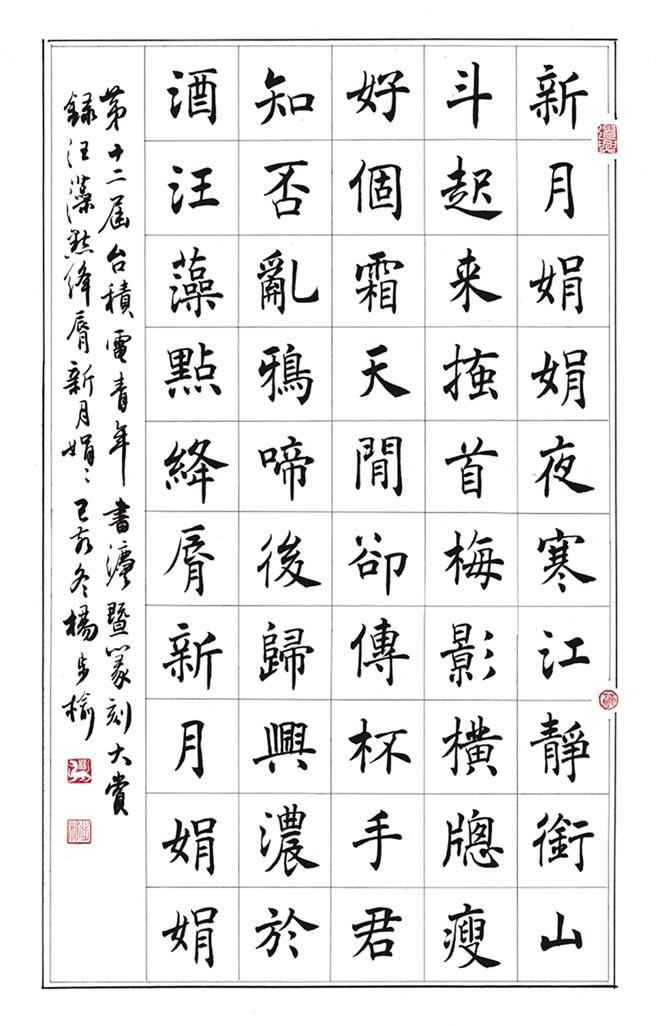 新月娟娟夜寒江靜銜山
斗起来搔首梅影橫牕瘦
好個霜天閒卻傳杯手君
知否亂鴉啼後歸興濃於
酒汪藻點絳脣新月娟娟
第十二屆台積電青年書灋暨篆刻大賞
録汪藻點絳脣新月娟〻己亥冬楊步榆